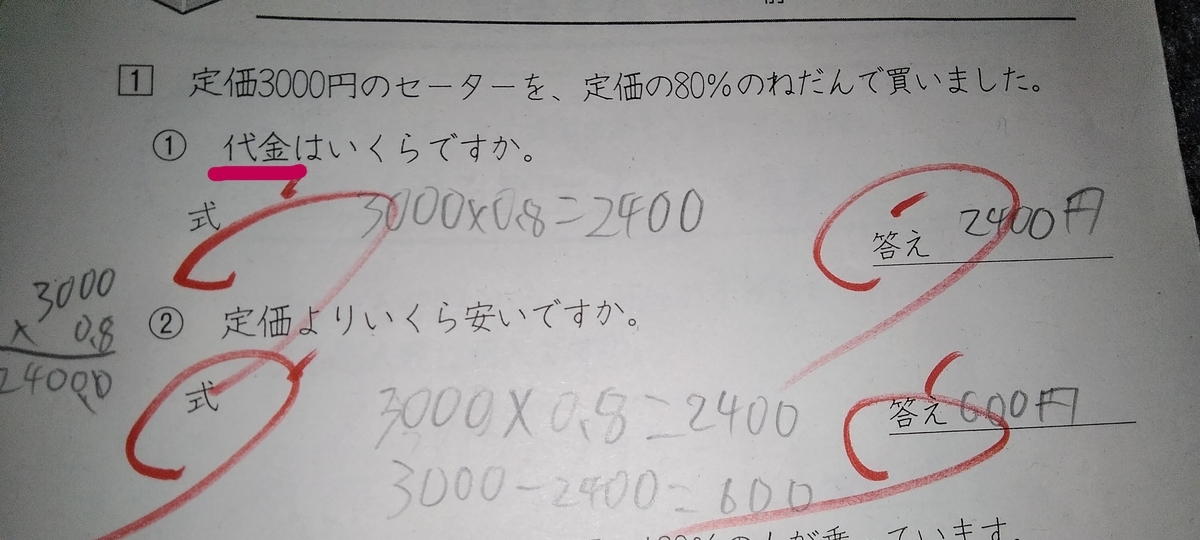 1 定価3000円のセーターを、定価の80%のねだんで買いました。
① 代金はいくらですか。
式 3000×0.8=2400
答え 2400円
3000
× 0.8
2400.0
② 定価よりいくら安いですか。
式 3000×0.8=2400
3000-2400=600
答え 600円
います。